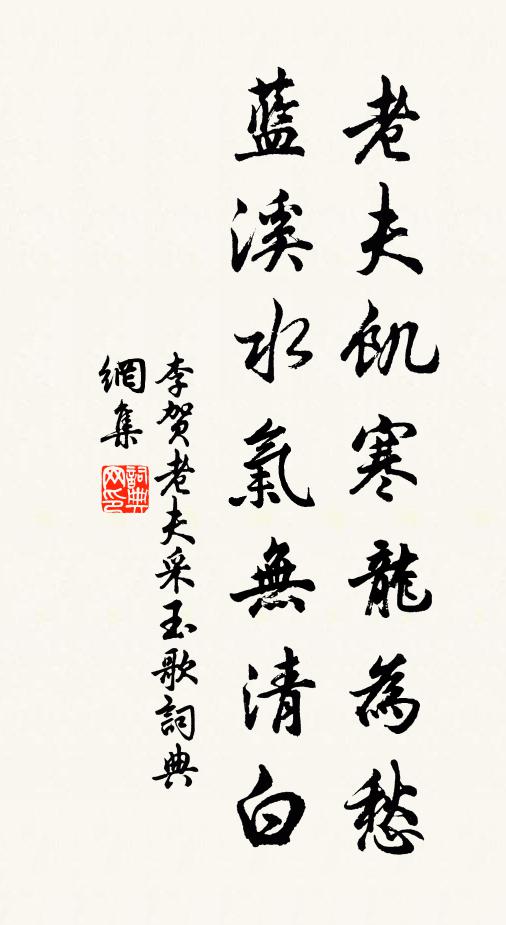 老夫飢寒龍為愁
藍溪水氣無清白
李賀老夫采玉歌詞典
網集
詞典
网印